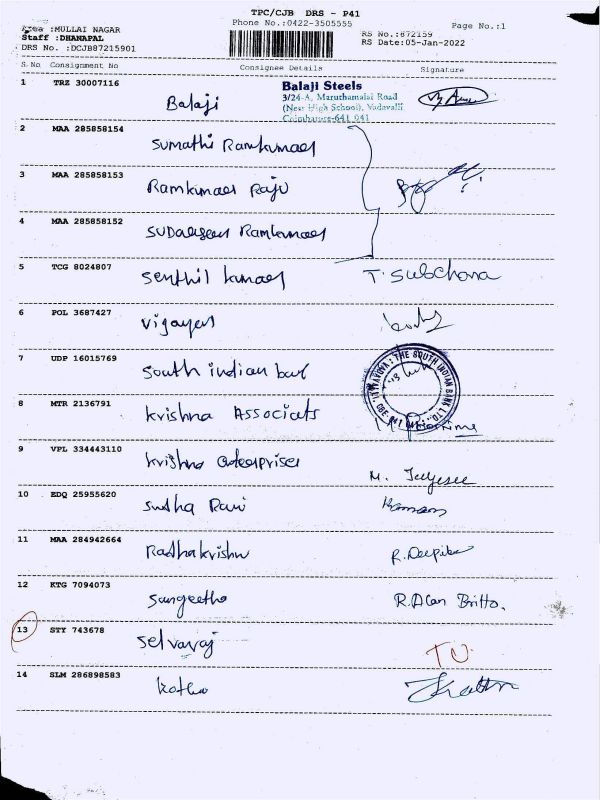 TPC/CJB DRS - P41
Phone No.:0422-3505555
Page No.:1
Area :MULLAI NAGAR
Staff :DHANAPAL
DRS No. :DCJB87215901
RS No.:872159
RS Date:05-Jan-2022
S.No Consignment No Consignee Details Signature
1 TRZ 30007116 Balaji
Balaji Steels
3/24-A, Maruthamalai Road
(Near High School), Vadavalli
Coimbatore-641 041
2 MAA 285858154 Sumathi Ramkumar
3 MAA 285858153 Ramkumar Raju
4 MAA 285858152 Ramkumar
5 TCG 8024807 Senthil kumar T. Subchara
6 POL 3687427 Vijayan
7 UDP 16015769 South indian
THE SOUTH INDIAN BANK LTD.
8 MTR 2136791 Krishna Associats
9 VPL 334443110 Krishna M.
10 EDQ 25955620 Sudha Ravi
11 MAA 284942664 Radhakrishn R. Deepika
12 KTG 7094073 Sangeetha R. Alan Britto.
13 STY 743678 Selvaraj
14 SLM 286898583